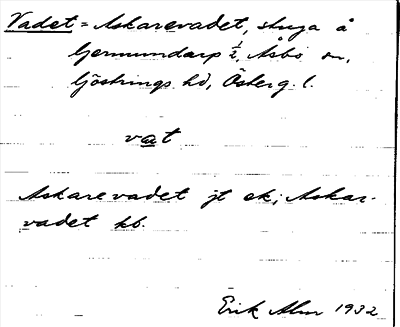 Vadet = Askarevadet, stuga å
Germundarp ½, Åsbo sn,
Göstrings hd, Österg. l.
vat
Askarevadet jt ek; Askar-
vadet kb.
Erik Alm 1932